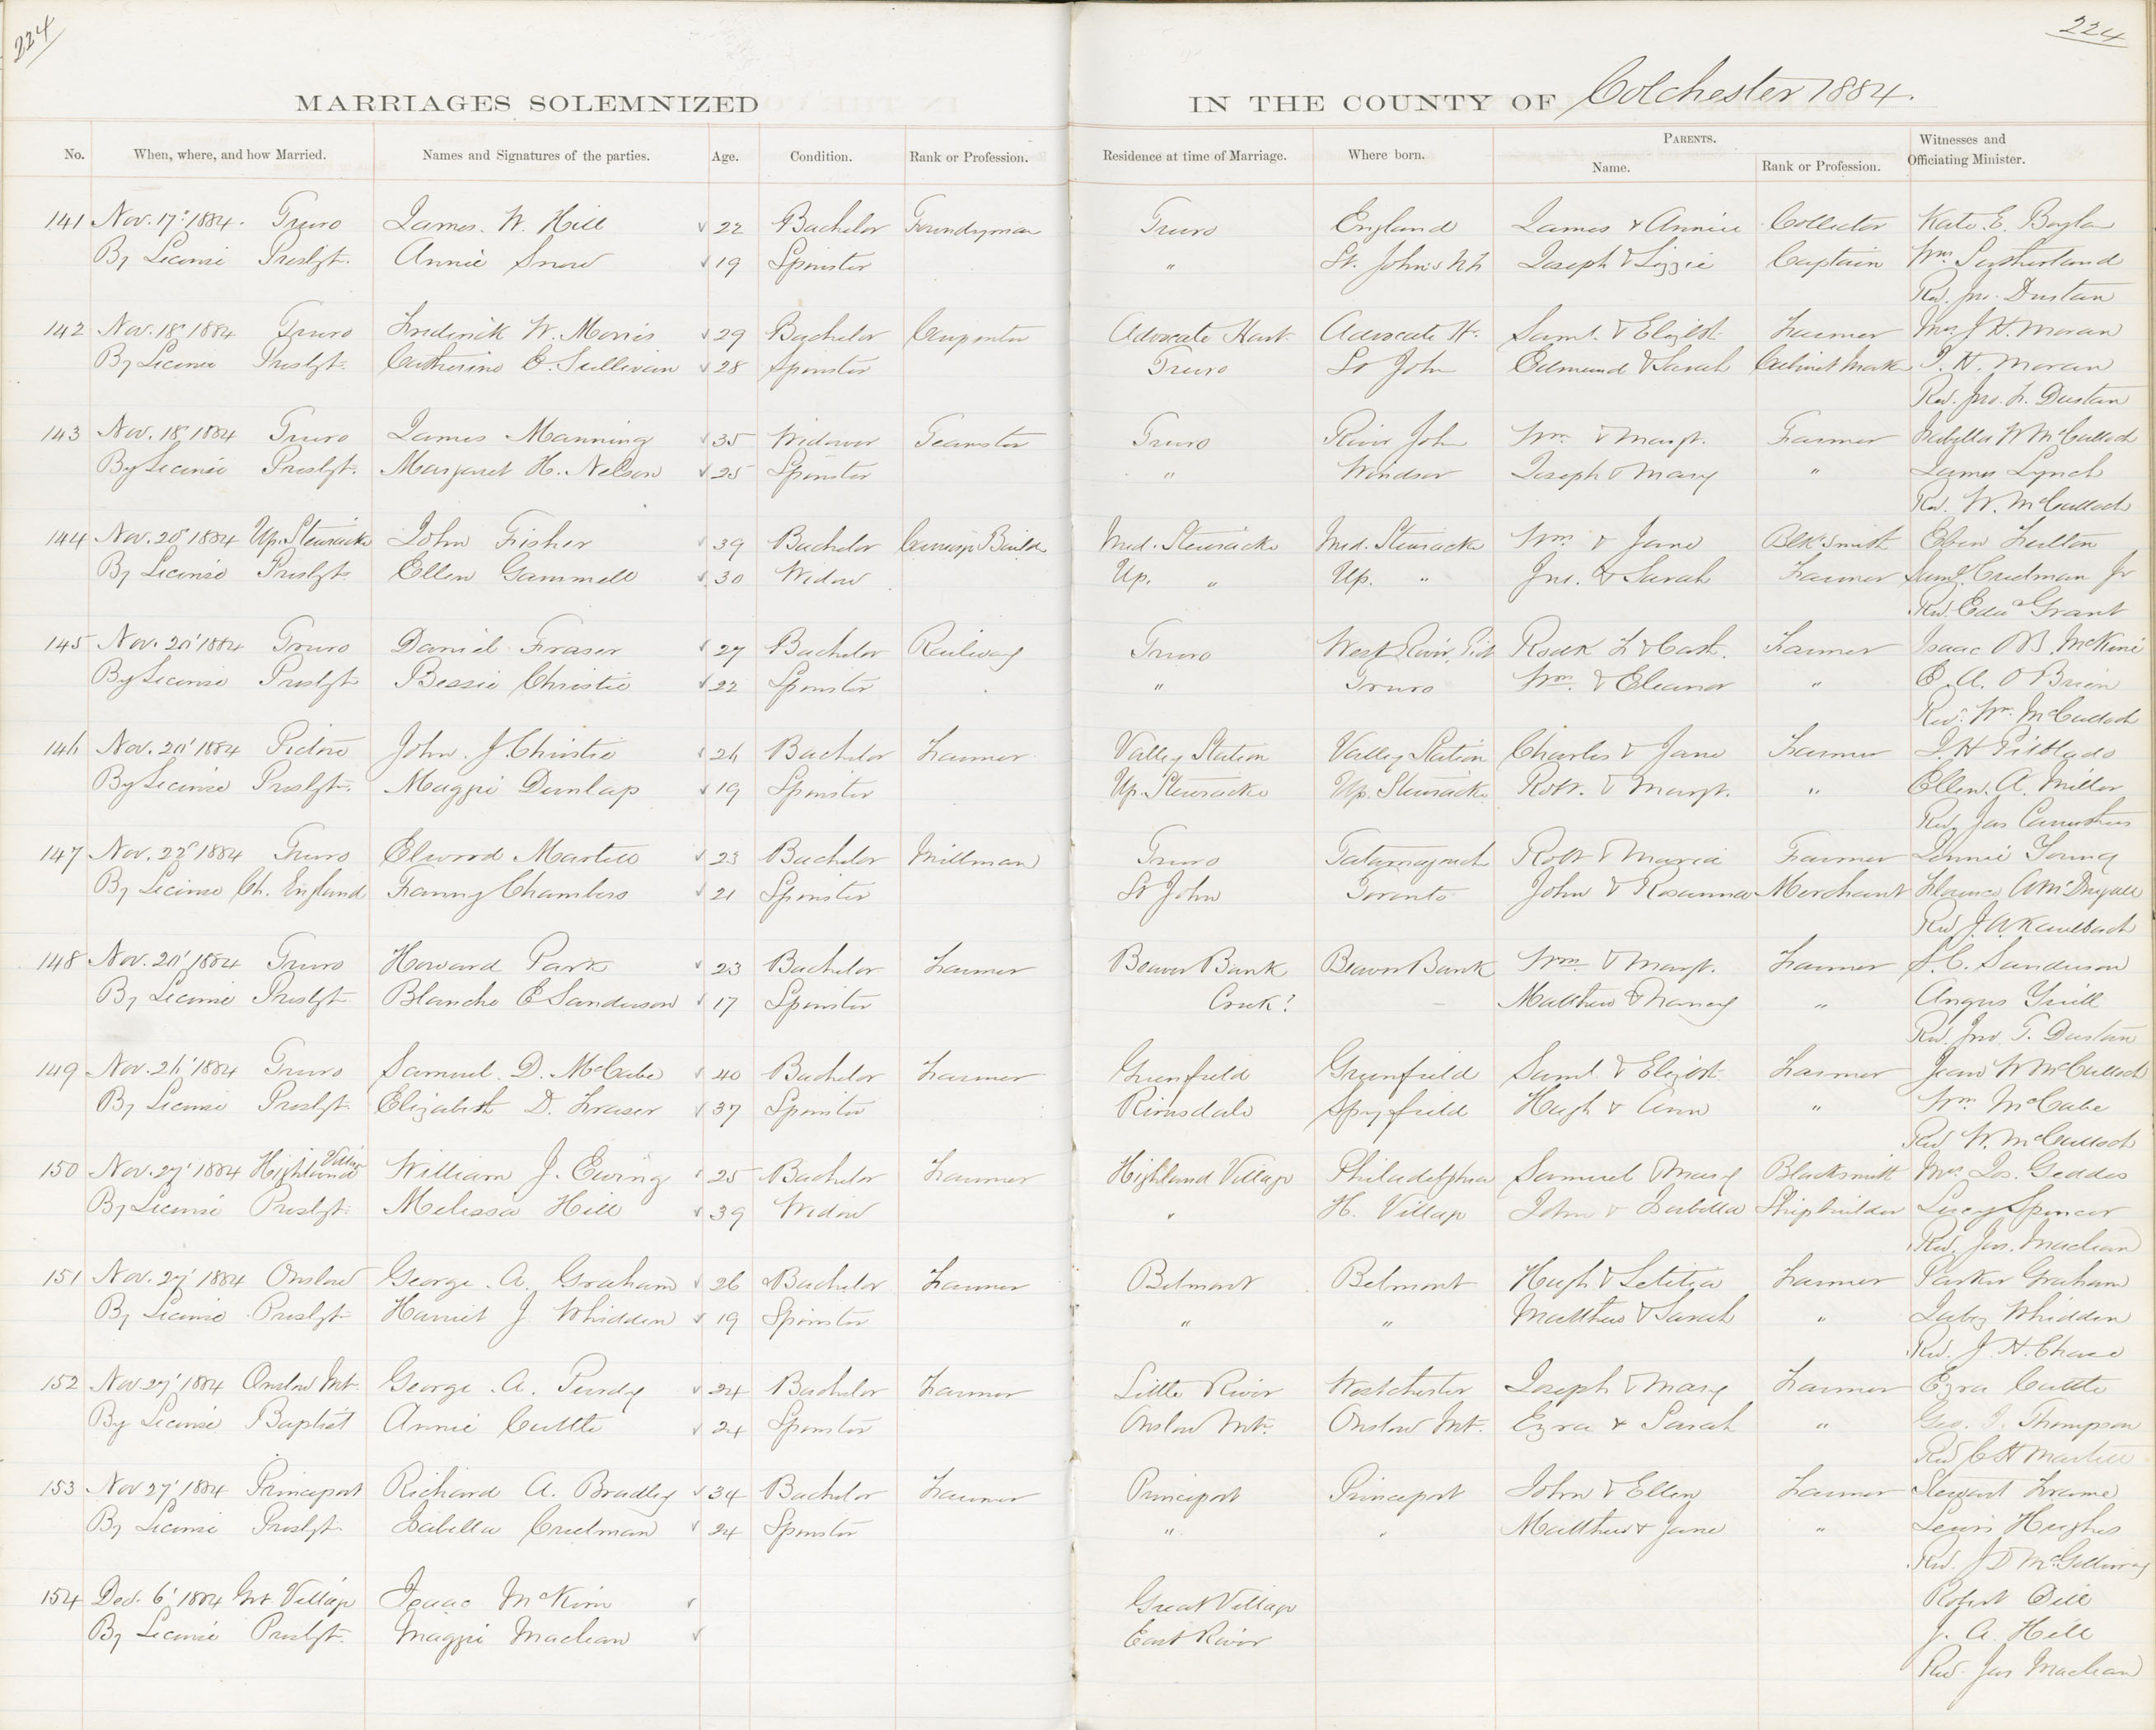 224
224
MARRIAGES SOLEMNIZED IN THE COUNTY OF Colchester 1884.
No. When, where, and how Married. Names and Signatures of the parties. Age. Condition. Rank or Profession. Residence at time of Marriage. Where born. PARENTS. Name. Rank or Profession. Witnesses and Officiating Minister.
141 Nov. 17' 1884. Truro James. W. Hill 22 Bachelor Foundryman Truro England James & Annie Collector Kate. E.
By License Presbyt. Annie Snow 19 Spinster " St. John's Joseph & Lizzie Captain Wm Sutherland
Rev. Jno. Dustan
142 Nov. 18' 1884 Truro Frederick W. Morris 29 Bachelor Carpenter Advocate Harb. Advocate H. Saml. & Elizbt. Farmer Mrs J. H. Moran
By License Presbyt. Catherine E. Sullivan 28 Spinster Truro St John Edmund & Sarah Cabinet Maker J. H. Moran
Rev. Jno. L. Dustan
143 Nov. 18' 1884 Truro James Manning 35 Widower Teamster Truro River John Wm & Margt. Farmer Isabella W McCulloch
By License Presbyt. Margaret H. Nelson 25 Spinster " Windsor Joseph & Mary " James Lynch
Rev. W. McCulloch
144 Nov. 20' 1884 Up. Stewiacke John Fisher 39 Bachelor Carriage Builder Mid. Stewiacke Mid. Stewiacke Wm & Jane Blk. Smith Eben Fulton
By License Presbyt. Ellen Gammell 30 Widow Up. " Up. " Jno. & Sarah Farmer Saml. Creelman Jr
Rev. Edwd Grant
145 Nov. 20' 1884 Truro Daniel Fraser 27 Bachelor Railway Truro West River, Pict Rodk F & Cath. Farmer Isaac
By License Presbyt. Bessie Christie 22 Spinster " Truro Wm. & Eleanor " E. A. O'Brien
Rev. Wm. McCulloch
146 Nov. 20' 1884 Pictou John. J. Christie 26 Bachelor Farmer Valley Station Valley Station Charles & Jane Farmer J. H Pitblado
By License Presbyt. Maggie Dunlap 19 Spinster Up. Stewiacke Up. Stewiacke Robt. & Margt. " Ellen. A. Miller
Rev. Jas Carruthers
147 Nov. 22' 1884 Truro Elwood Martell 23 Bachelor Millman Truro Tatamagouch Robt & Maria Farmer Young
By License Ch. England Fanny Chambers 21 Spinster St John Toronto John & Rosanna Merchant Florence
Rev J. A. Kaulbach
148 Nov. 20' 1884 Truro Howard Park 23 Bachelor Farmer Beaver Bank Beaver Bank Wm & Margt. Farmer S. C. Sanderson
By License Presbyt Blanche E Sanderson 17 Spinster Creek? – Matthew & Nancy " Angus Yuill
Rev. Jno. T. Dustan
149 Nov. 26' 1884 Truro Samuel. D. McCabe 40 Bachelor Farmer Greenfield Greenfield Saml & Elizbt. Farmer Jean W McCulloch
By License Presbyt. Elizabeth D. Fraser 37 Spinster Riversdale Spryfield Hugh & Ann " Wm McCabe
Rev W. McCulloch
150 Nov. 27' 1884 Highland Village William J. Ewing 25 Bachelor Farmer Highland Village Philadelphia Samuel & Mary Blacksmith Mrs. Jos. Geddes
By License Presbyt. Melissa Hill 39 Widow " H. Village John & Isabella Shipbuilder Lucy Spencer
Rev. Jas. Maclean
151 Nov. 27' 1884 Onslow George. A. Graham 26 Bachelor Farmer Belmont Belmont Hugh & Letitia Farmer Parker Graham
By License Presbyt Harriet J Whidden 19 Spinster " " Matthew & Sarah " Whidden
Rev. J. H. Chase
152 Nov 27' 1884 Onslow Mt. George. A. Purdy 24 Bachelor Farmer Little River Westchester Joseph & Mary Farmer Ezra Cuttle
By License Baptist Annie Cuttle 24 Spinster Onslow Mt. Onslow Mt. Ezra & Sarah " Geo. Thompson
Rev C H Martell
153 Nov 27' 1884 Princeport Richard A. Bradley 34 Bachelor Farmer Princeport Princeport John & Ellen Farmer Stewart Frame
By License Presbyt. Isabella Creelman 24 Spinster " " Matthew & Jane " Lewis Hughes
Rev. J D McGillivray
154 Dec. 6' 1884 Grt Village Isaac McKim Great Village Robert Dill
By License Presbyt. Maggie Maclean East River J. A. Hill
Rev. Jas Maclean